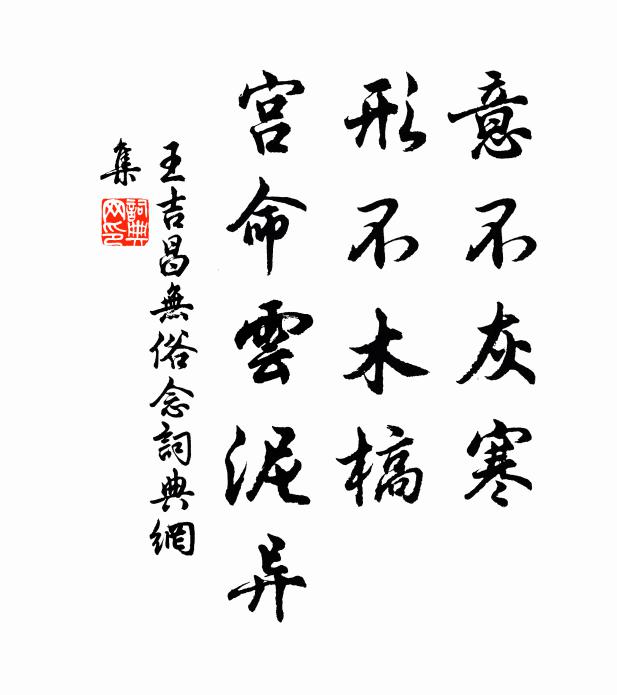 意不灰寒
形不木槁
宫命雲泥异
王吉昌無俗念詞典網
集
詞典
网印